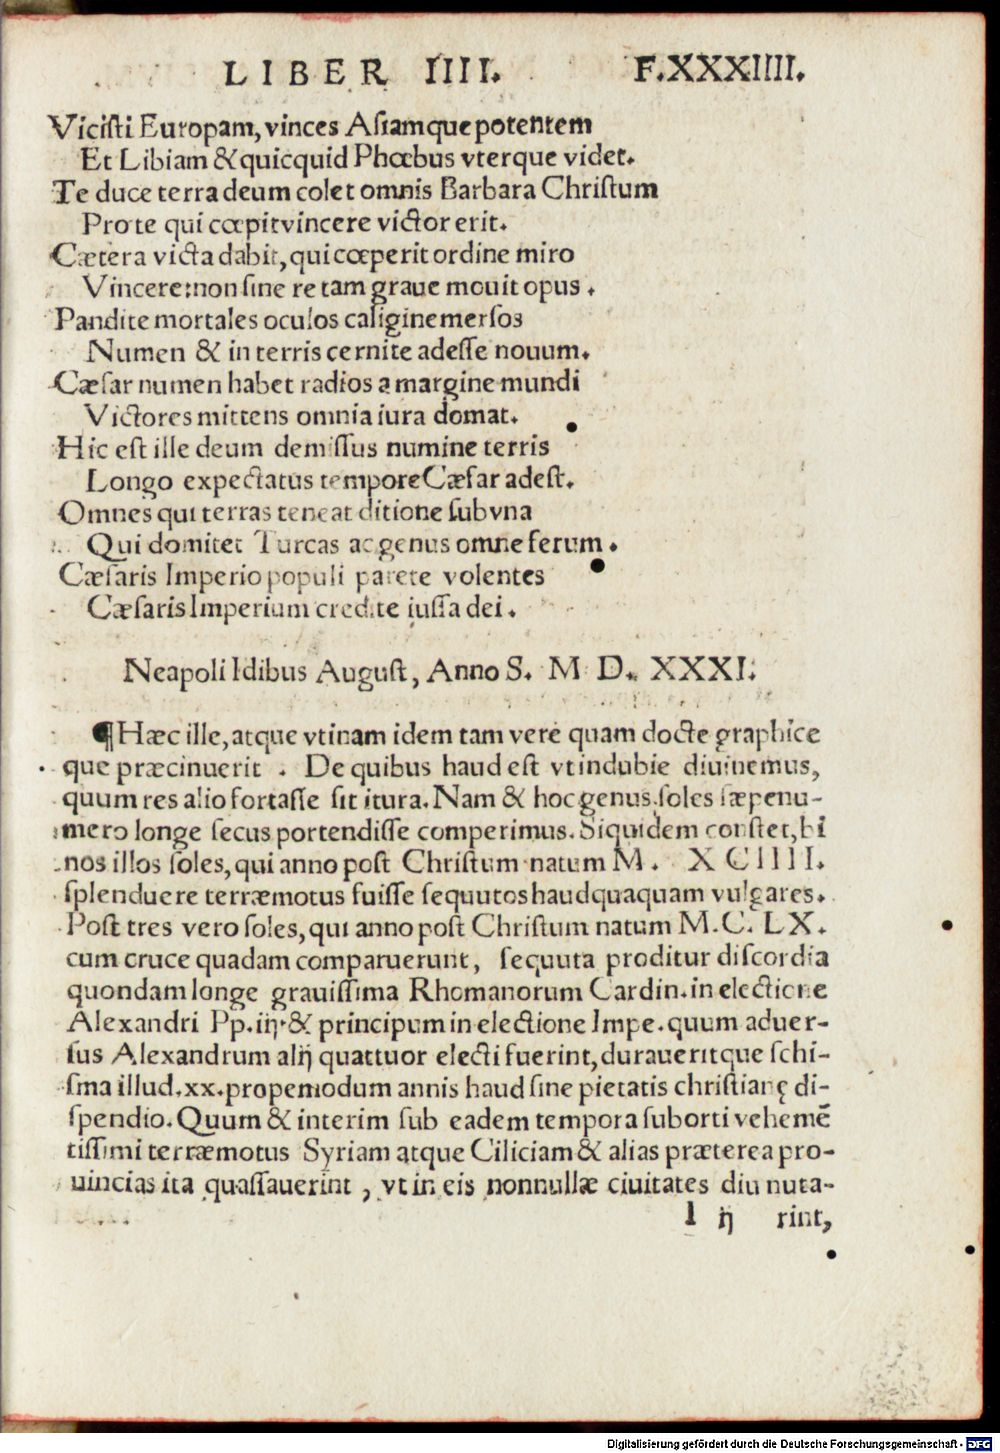 LIBER IIII. F.XXXIIII.
Vicisti Europam, vinces Asiamque potentem
Et Libiam & quicquid Phœbus vterque videt.
Te duce terra deum colet omnis Barbara Christum
Pro te qui cœpit vincere victor erit.
Cætera victa dabit, qui cœperit ordine miro
Vincere: non sine re tam graue mouit opus.
Pandite mortales oculos caligine mersos
Numen & in terris cernite adesse nouum.
Cæsar numen habet radios a margine mundi
Victores mittens omnia iura domat.
Hic est ille deum demissus numine terris
Longo expectatus tempore Cæsar adest.
Omnes qui terras teneat ditione sub vna
Qui domitet Turcas ac genus omne ferum.
Cæsaris Imperio populi parete volentes
Cæsaris Imperium credite iussa dei.
Neapoli Idibus August, Anno S. M D. XXXI.
¶ Hæc ille, atque vtinam idem tam vere quam docte graphice
que præcinuerit. De quibus haud est vt indubie diuinemus,
quum res alio fortasse sit itura. Nam & hoc genus soles sæpenu-
mero longe secus portendisse comperimus. Siquidem constet, bi
nos illos soles, qui anno post Christum natum M. XCIIII.
splenduere terræmotus fuisse sequutos haudquaquam vulgares.
Post tres vero soles, qui anno post Christum natum M.C. LX.
cum cruce quadam comparuerunt, sequuta proditur discordia
quondam longe grauissima Rhomanorum Cardin. in electione
Alexandri Pp. iij. & principum in electione Impe. quum aduer-
sus Alexandrum alij quattuor electi fuerint, duraueritque schi-
sma illud .xx. propemodum annis haud sine pietatis christianę di-
spendio. Quum & interim sub eadem tempora suborti vehemē
tissimi terræmotus Syriam atque Ciliciam & alias præterea pro-
uincias ita quassauerint, vt in eis nonnullæ ciuitates diu nuta-
l ij rint,
Digitalisierung gefördert durch die Deutsche Forschungsgemeinschaft - DFG